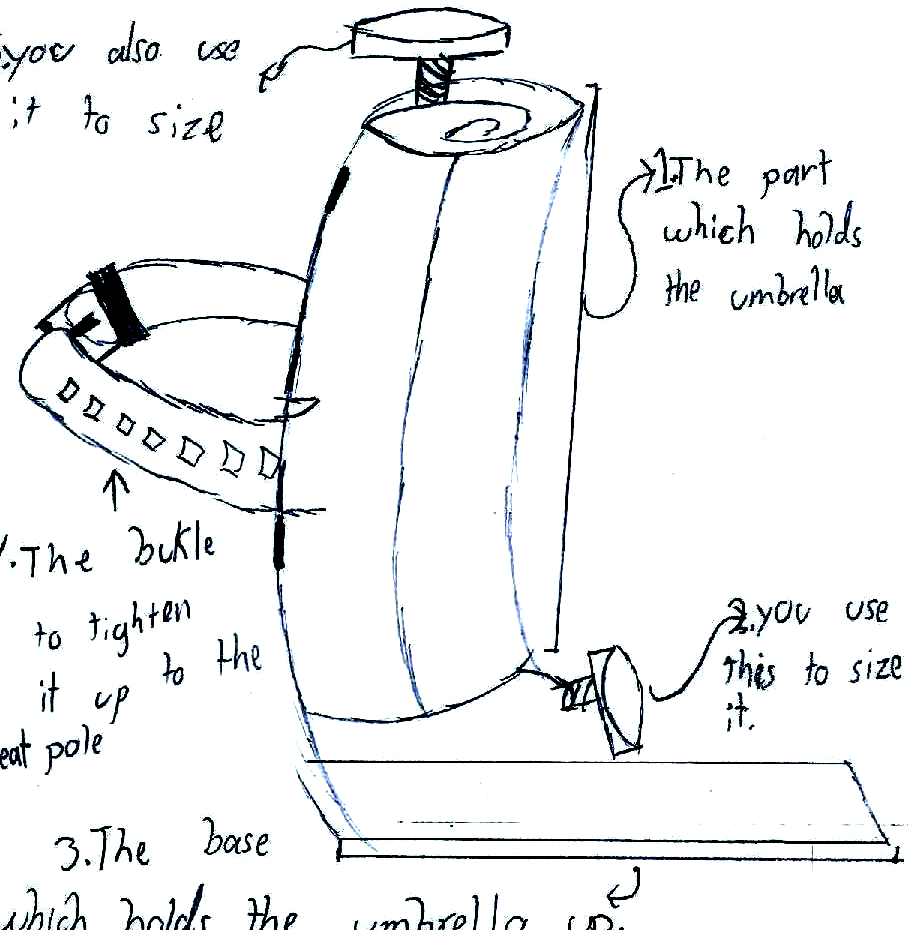 you also use
it to size
1.The part
which holds
the umbrella
4.The bukle
to tighten
it up to the
eat pole
2.you use
this to size
it.
3.The base
which holds the umbrella up.